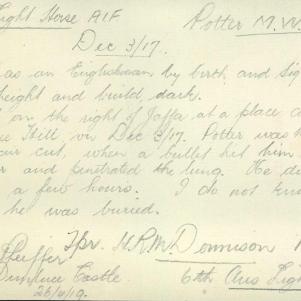 ight Horse AIF Potter M.W
Dec 3/17.
as an Englishman by birth and
height and build, dark.
on the right of Jaffa at a place
Hill on Dec 3/17. Potter was
cut, when a bullet hit him
and penetrated the lung. He di
a few hours. I do not kno
he was buried.
Pfeiffer Tpr. H.R.M. Dennison
Castle 6th Aus Lig
26/4/19.